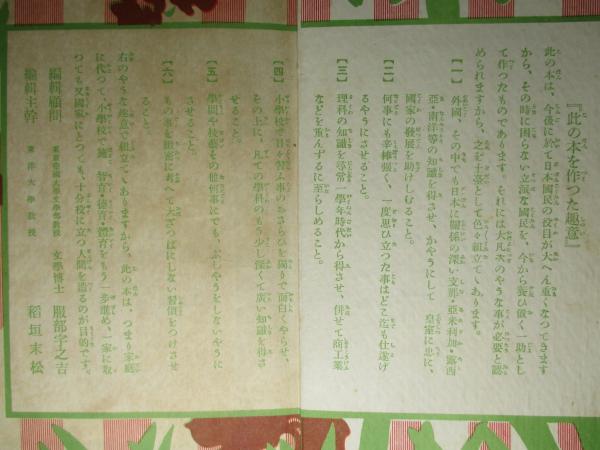 『此の本を作つた趣意』
此の本は、今後に於て日本國民の役目が大へん重くなつてきます
から、その時に困らない立派な國民を、今から養ひ做く一助とし
て作つたものであります。それには大凡次のやうな事が必要と認
められますから、之を土臺として色々組立てゝあります。
【一】
外國、その中でも日本に關係の深い支那・亞米利加・露西
亞・南洋等の知識を得させ、かやうにして 皇室に忠に、
國家の發展を助けしむること。
【二】
何事にも辛棒强く、一度思ひ立つた事はどこ迄も仕遂げ
るやうにさせること。
【三】
理科の知識を尋常一學年時代から得させ、併せて商工業
などを重んずるに至らしめること。
【四】
小學校で日々習ふ事のおさらひを獨りで面白くやらせ、
その上に、凡ての學科のもう少し深くて廣い知識を得さ
せること。
【五】
學問でも技藝その他何事にでも、ぶしやうをしないやうに
させること。
【六】
もの事を細密に考へて大ざつぱにしない習慣をつけさせ
ること。
右のやうな趣意で組立てゝありますから、此の本は、つまり家庭
に代つて、小學校で施す智育・德育・體育をもう一步進め、一家に取
つても又國家にとつても、十分役に立つ人間を造るのが目的です。
編輯顧問 東京帝國大學文學部教授 文學博士 服部宇之吉
編輯主幹 東洋大學敎授 稻垣末松